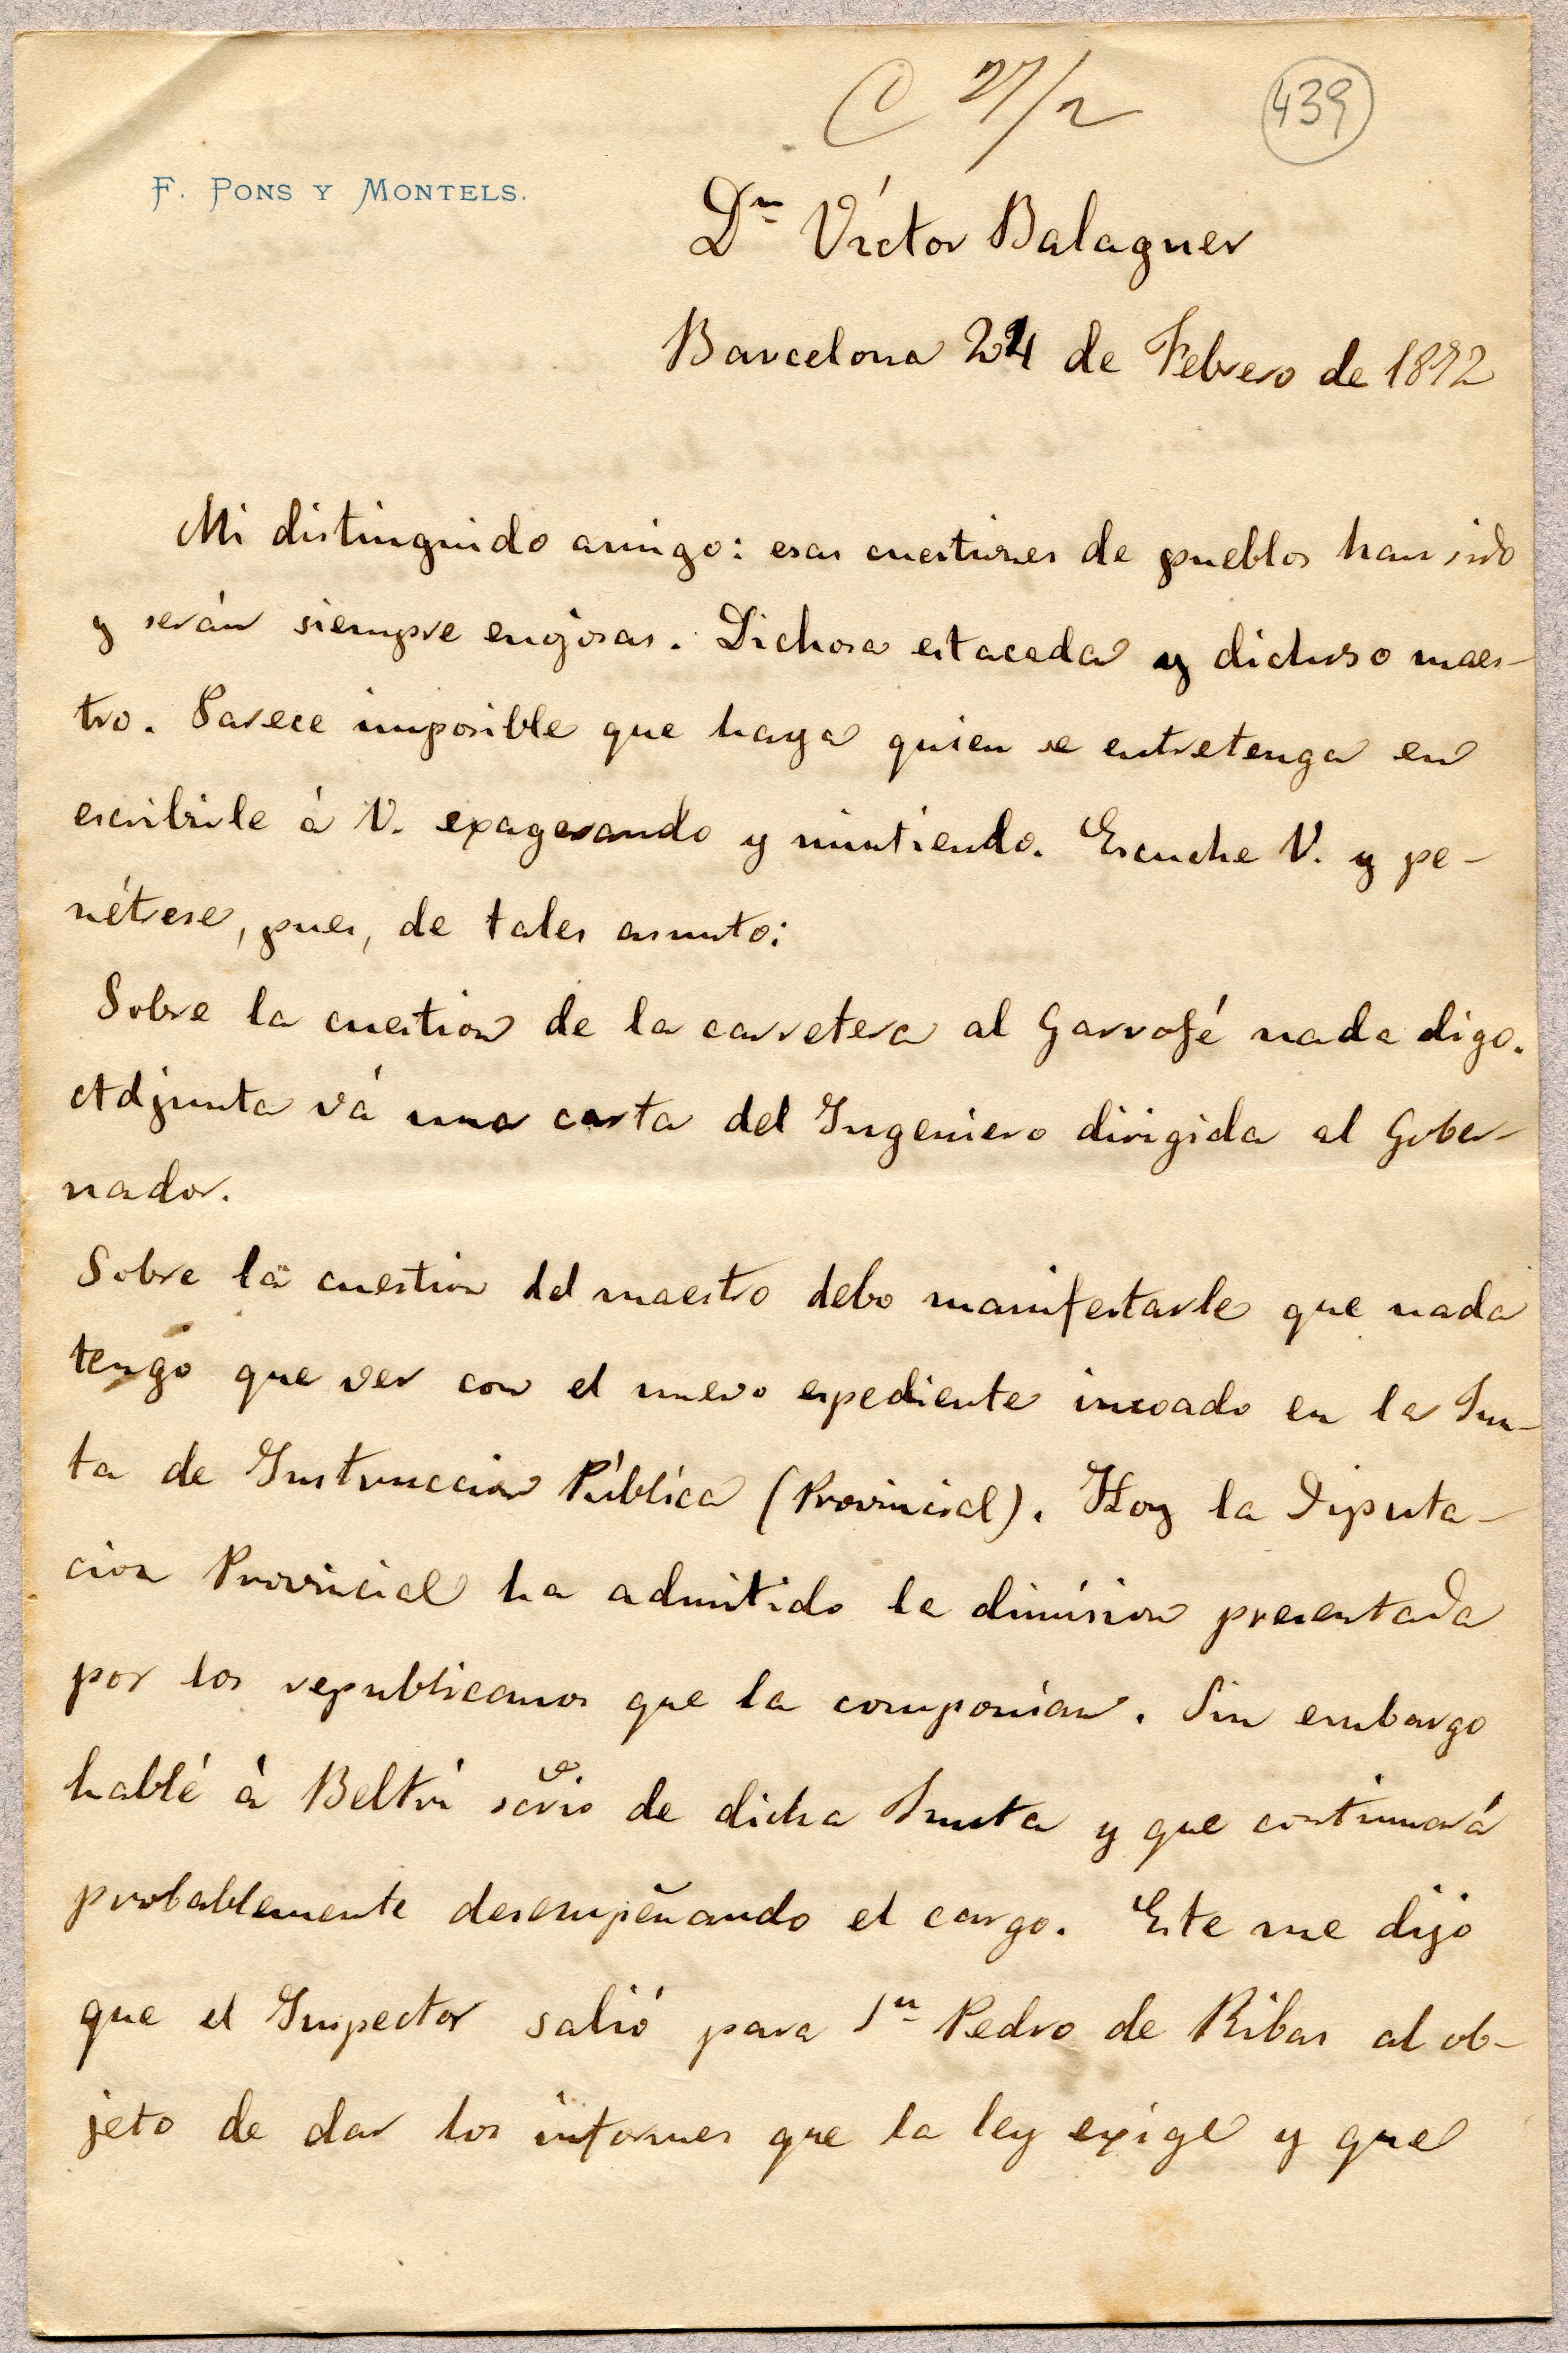 C 27/2
439
F. PONS Y MONTELS.
Dn Víctor Balaguer
Barcelona 24 de Febrero de 1892
Mi distinguido amigo: esas cuestiones de pueblos han sido
y serán siempre enojosas. Dichosa estacada y dichoso maes-
tro. Parece imposible que haya quien se entretenga en
escribirle á V. exagerando y mintiendo. Escuche V. y pe-
nétrese, pues, de tales asunto:
Sobre la cuestion de la carretera al Garrofé nada digo.
Adjunta vá una carta del Ingeniero dirigida al Gober-
nador.
Sobre la cuestion del maestro debo manifestarle que nada
tengo que ver con el nuevo expediente incoado en la Jun-
ta de Instruccion Pública (Provincial). Hoy la Diputa-
cion Provincial ha admitido la dimision presentada
por los republicanos que la componian. Sin embargo
hablé á Beltri srio de dicha Junta y que continuará
probablemente desempeñando el cargo. Este me dijo
que el Inspector salió para Sn Pedro de Ribas al ob-
jeto de dar los informes que la ley exige y que